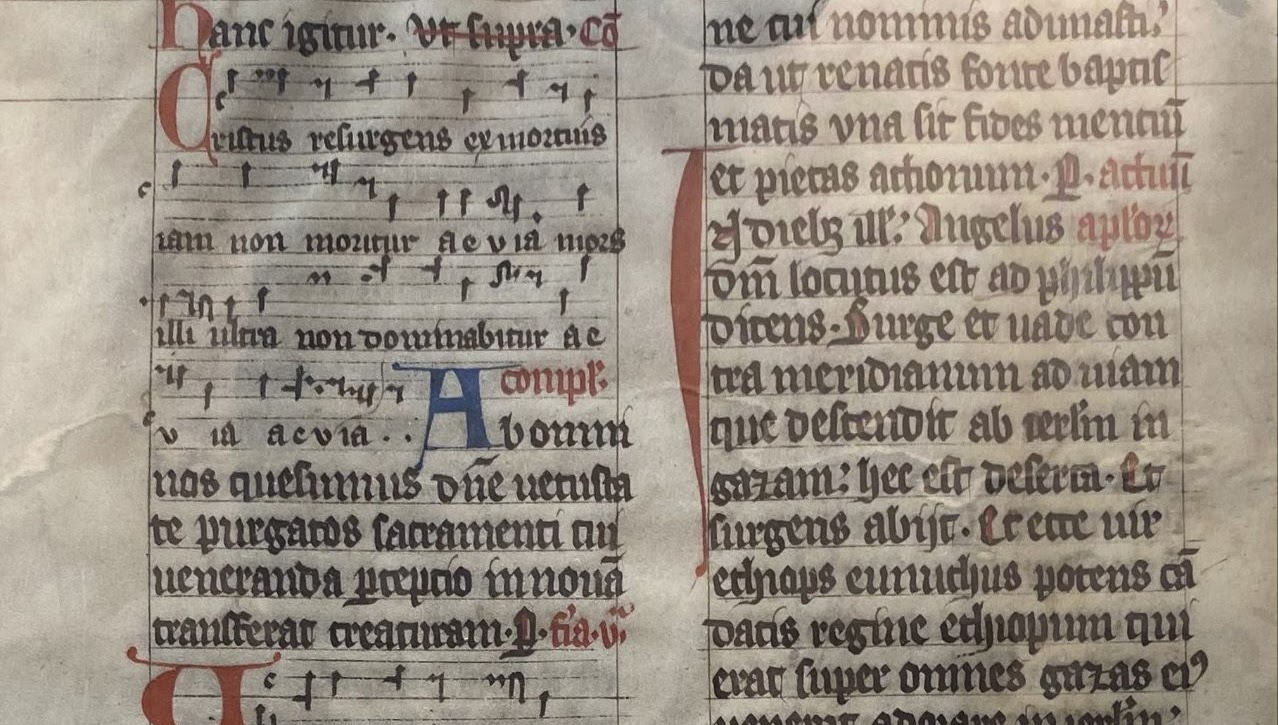 Hanc igitur. Vt supra. Cō
Cristus resurgens ex mortuis
iam non moritur ae v ia mors
illi ultra non dominabitur ae
v ia aevia.. compl'.
Ab omni
nos quesumus dn̄e uetusta
te purgatos sacramenti tui
ueneranda ꝑceptio in nouā
transferat creaturam. P. fīa. v.
ne tui nominis adunasti,
da ut renatis fonte baptis
matis vna sit fides mentiū
et pietas actionum. P. actuū
Angelus apl'oꝝ
dn̄i locutus est ad philippū
dicens. Surge et uade con
tra meridianum ad uiam
que descendit ab ierl'm in
gazam: hec est deserta. Et
surgens abijt. Et ecce uir
ethiops eunuchus potens cā
datis regine ethiopum qui
erat super omnes gazas eiꝰ
uenerat adorare in ierl'm: